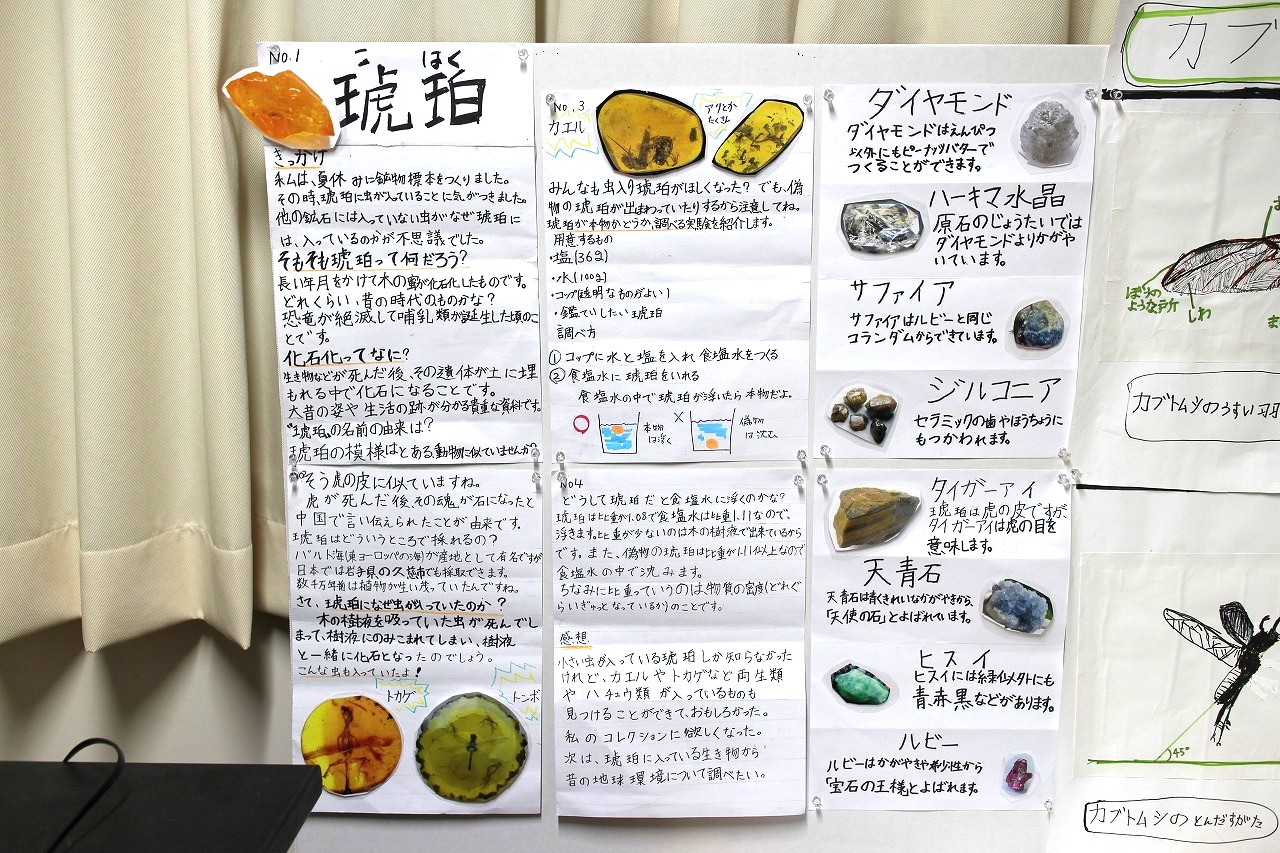 No.1
こ はく
琥珀
きっかけ
私は、夏休みに鉱物標本をつくりました。
その時、琥珀に虫が入っていることに気がつきました。
他の鉱石には入っていない虫がなぜ琥珀に
は、入っているのかが不思議でした。
そもそも琥珀って何だろう?
長い年月をかけて木の蜜が化石化したものです。
どれくらい、昔の時代のものかな?
恐竜が絶滅して哺乳類が誕生した頃のこ
とです。
化石化ってなに?
生き物などが死んだ後、その遺体が土に埋
もれる中で化石になることです。
大昔の姿や生活の跡が分かる貴重な資料です。
"琥珀"の名前の由来は?
琥珀の模様はとある動物に似ていませんか?
そう虎の皮に似ていますね。
虎が死んだ後、その魂が石になったと
中国で言い伝えられたことが由来です。
琥珀はどういうところで採れるの?
バルト海(東ヨーロッパの海)が産地として有名ですが
日本では岩手県の久慈市でも採取できます。
数千万年前は植物が生い茂っていたんですね。
さて、琥珀になぜ虫が入っていたのか?
木の樹液を吸っていた虫が死んでし
まって、樹液にのみこまれてしまい、樹液
と一緒に化石となったのでしょう。
こんな虫も入っていたよ!
トカゲ
トンボ
No.3
カエル
アリとか
たくさん
みんなも虫入り琥珀がほしくなった?でも、偽
物の琥珀が出まわっていたりするから注意してね。
琥珀が本物かどうか、調べる実験を紹介します。
用意するもの
・塩(36g)
・水(100g)
・コップ(透明なものがよい)
・鑑定したい琥珀
調べ方
①コップに水と塩を入れ食塩水をつくる
②食塩水に琥珀をいれる
食塩水の中で琥珀が浮いたら本物だよ。
本物
は浮く
×
偽物
は沈む。
No4
どうして琥珀だと食塩水に浮くのかな?
琥珀は比重が1.08で食塩水は比重1.11なので、
浮きます。比重が少ないのは木の樹液で出来ているから
です。また、偽物の琥珀は比重が1.11以上なので
食塩水の中で沈みます。
ちなみに比重っていうのは物質の密度(どれぐ
らいぎゅっとなっているか)のことです。
感想
小さい虫が入っている琥珀しか知らなかった
けれど、カエルやトカゲなど両生類
やハチュウ類が入っているものも
見つけることができて、おもしろかった。
私のコレクションに欲しくなった。
次は、琥珀に入っている生き物から
昔の地球環境について調べたい。
ダイヤモンド
ダイヤモンドはえんぴつ
以外にもピーナッツバターで
つくることができます。
ハーキマ水晶
原石のじょうたいでは
ダイヤモンドよりかがや
いています。
サファイア
サファイアはルビーと同じ
コランダムからできています。
ジルコニア
セラミックの歯やほうちょうに
もつかわれます。
タイガーアイ
琥珀は虎の皮ですが
タイガーアイは虎の目を
意味します。
天青石
天青石は青くきれいなかがやきから、
「天使の石」とよばれています。
ヒスイ
ヒスイには緑以外にも
青、赤、黒などがあります。
ルビー
ルビーはかがやきや希少性から
「宝石の王様」とよばれます。
カブ
ような所
しわ
カブトムシのうすい羽
45°
カブトムシのとんだすがた